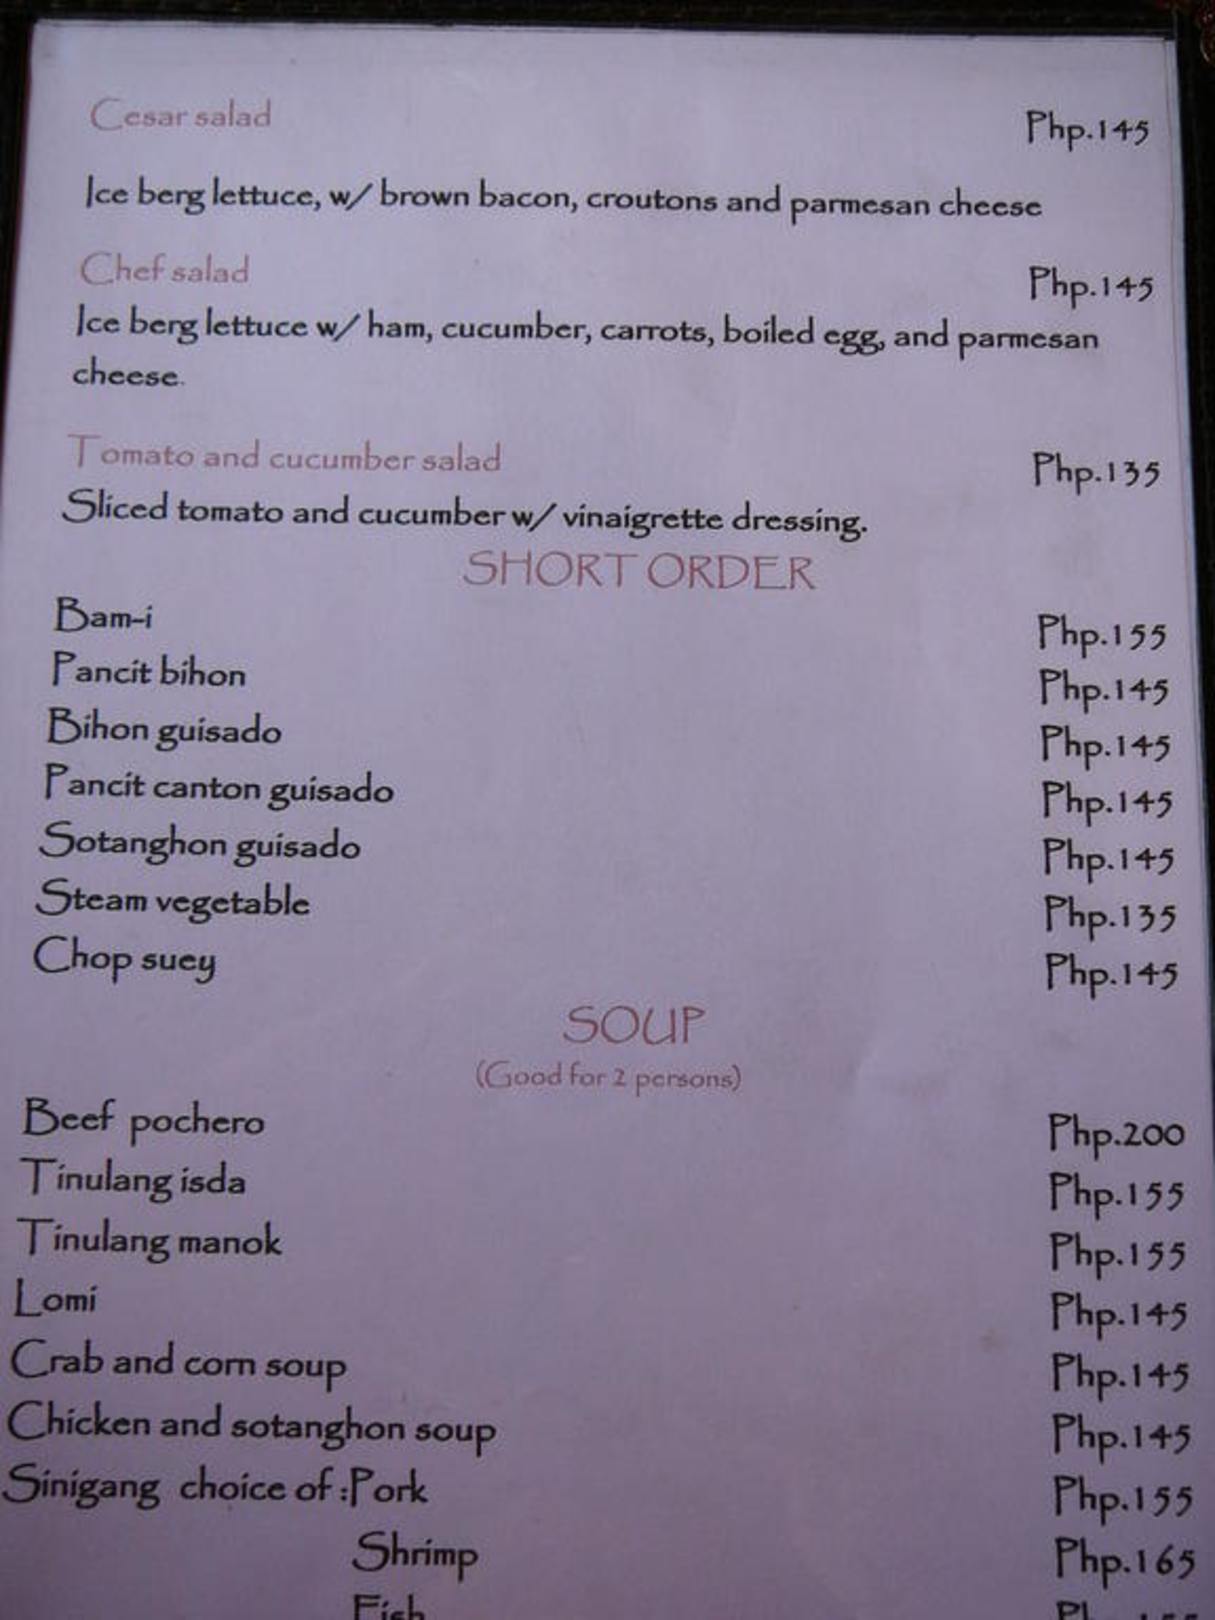 Cesar salad Php.145
Ice berg lettuce, w/ brown bacon, croutons and parmesan cheese
Chef salad Php.145
Ice berg lettuce w/ ham, cucumber, carrots, boiled egg, and parmesan
cheese.
Tomato and cucumber salad Php.135
Sliced tomato and cucumber w/ vinaigrette dressing.
SHORT ORDER
Bam-i Php.155
Pancit bihon Php.145
Bihon guisado Php.145
Pancit canton guisado Php.145
Sotanghon guisado Php.145
Steam vegetable Php.135
Chop suey Php.145
SOUP
(Good for 2 persons)
Beef pochero Php.200
Tinulang isda Php.155
Tinulang manok Php.155
Lomi Php.145
Crab and corn soup Php.145
Chicken and sotanghon soup Php.145
Sinigang choice of :Pork Php.155
Shrimp Php.165
Fish